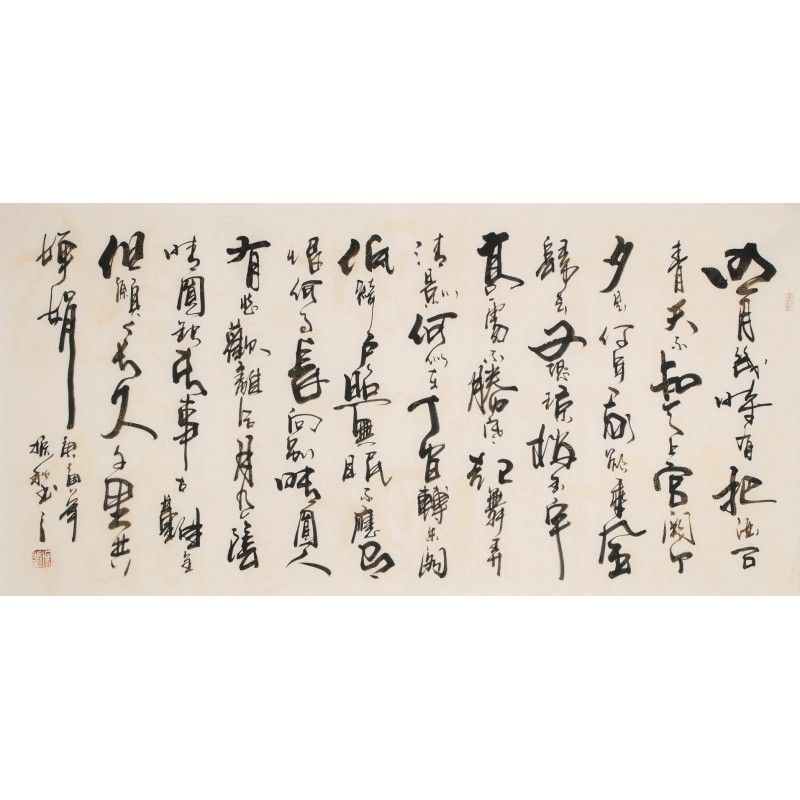 明月幾時有把酒问
青天不知天上宫阙今
夕是何年我欲乘風
歸去又恐瓊楼玉宇
高處不勝寒起舞弄
清影何似在人间轉朱阁
低綺户照無眠不應有
恨何事長向别時圓人
有悲歡離合月有陰
晴圓缺此事古難全
但願人長久千里共
嬋娟
庚寅年